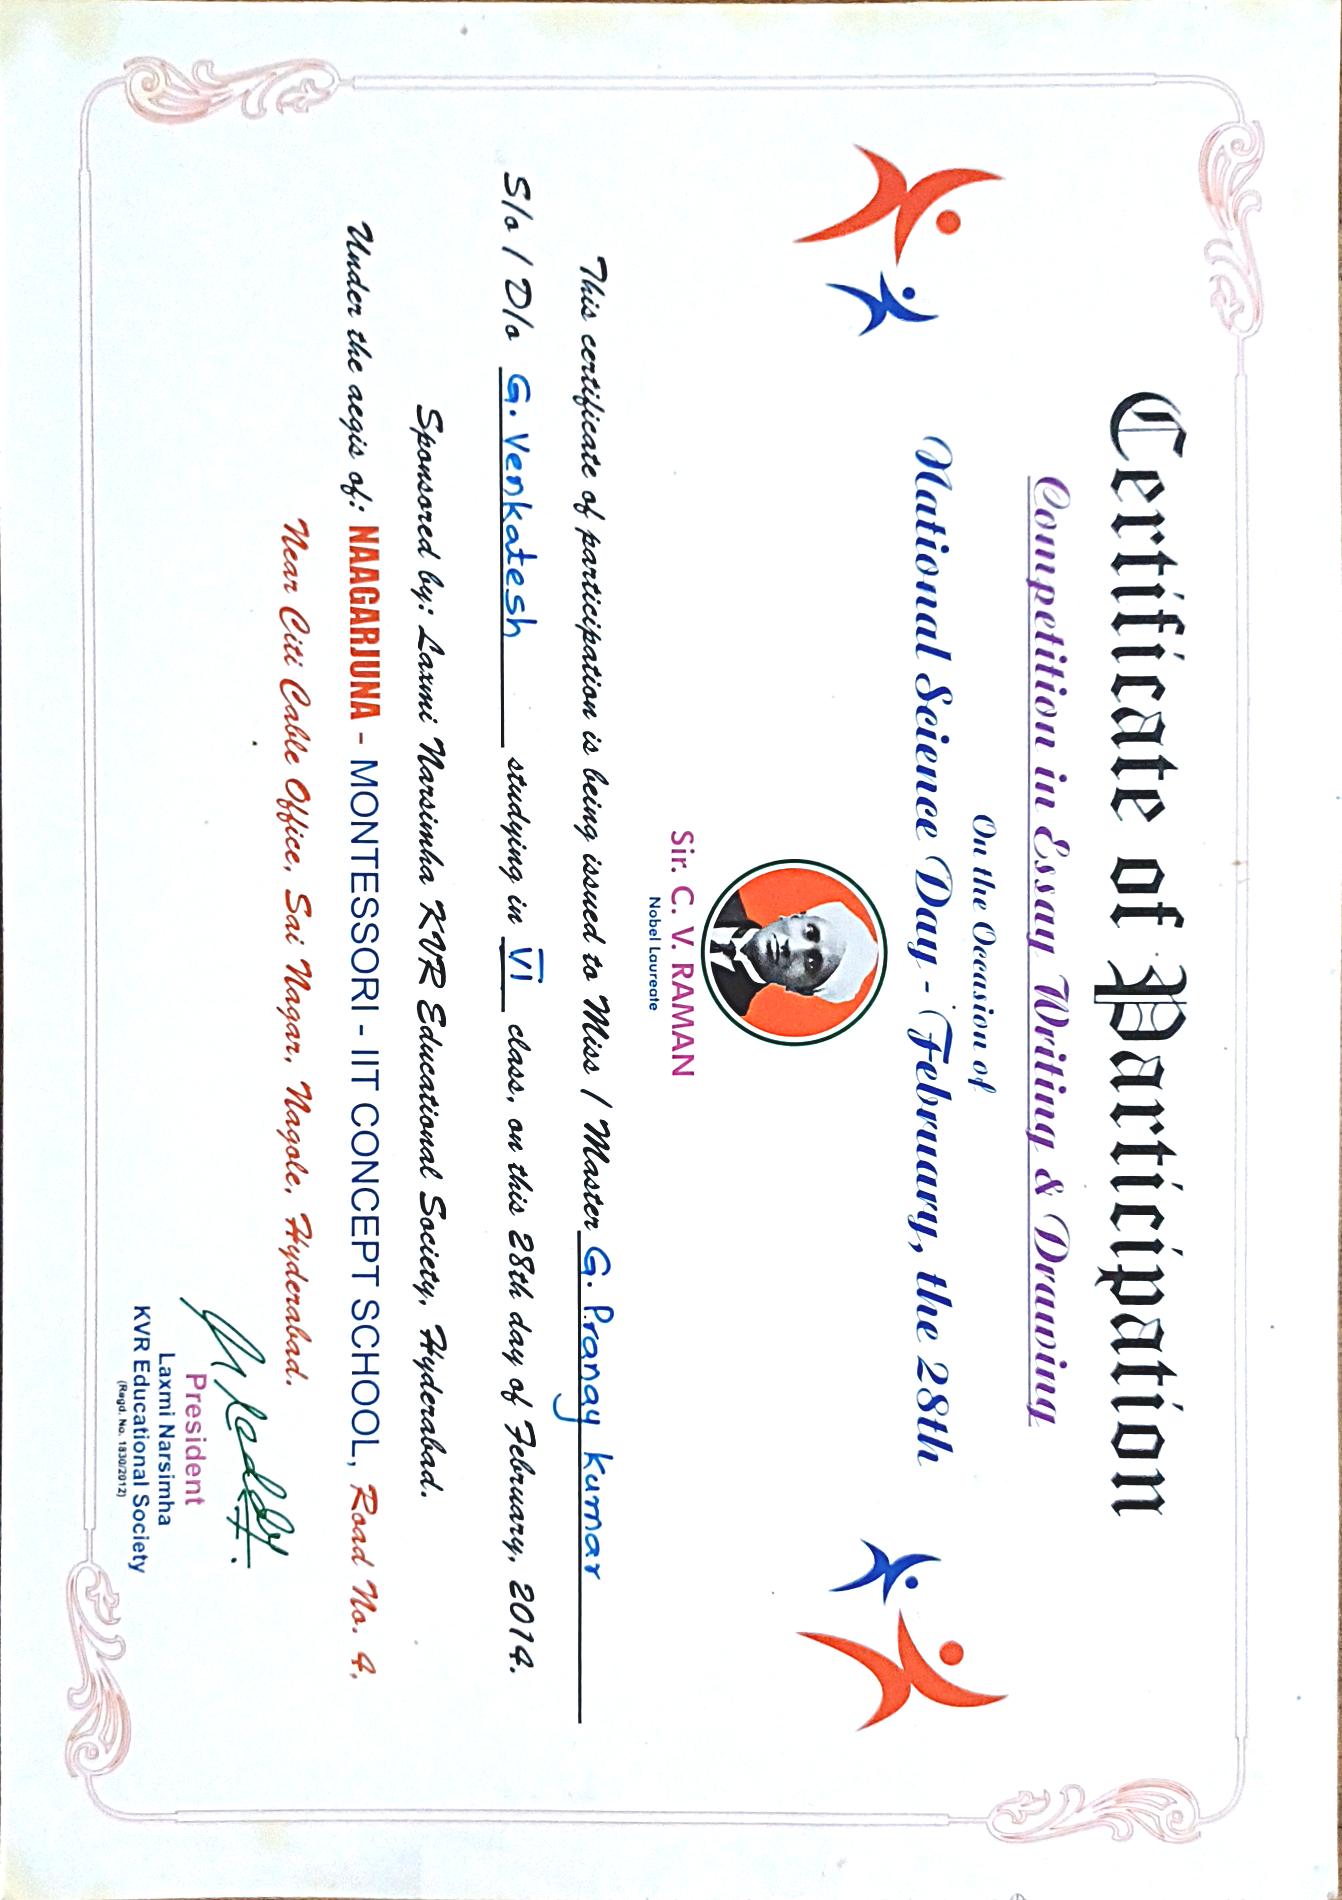 Certificate of Participation
Competition in Essay Writing & Drawing
On the Occasion of
National Science Day - February, the 28th
Sir. C. V. RAMAN
Nobel Laureate
This certificate of participation is being issued to Miss / Master G. Pranay Kumar
S/o / D/o G. Venkatesh studying in VI class, on this 28th day of February, 2014.
Sponsored by: Laxmi Narsimha KVR Educational Society, Hyderabad.
Under the aegis of: NAAGARJUNA - MONTESSORI - IIT CONCEPT SCHOOL, Road No. 4,
Near Citi Cable Office, Sai Nagar, Nagole, Hyderabad.
President
Laxmi Narsimha
KVR Educational Society
(Regd. No. 1830/2012)